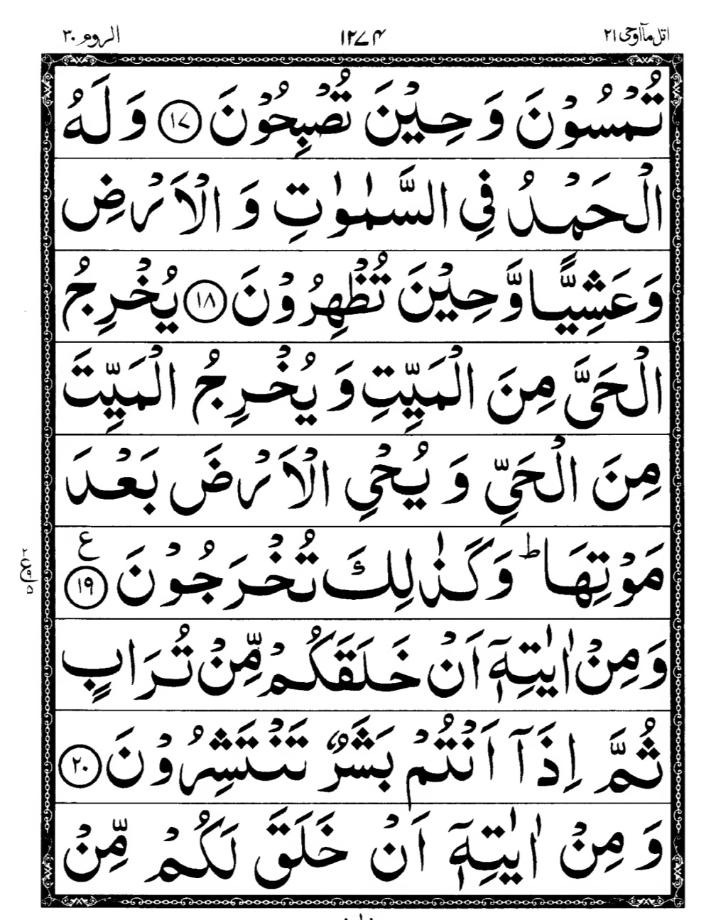 اتل مآ اوحی ۲۱ ۱۲۷۴ الروم ۳۰
تُمْسُوْنَ وَ حِيْنَ تُصْبِحُوْنَ ﴿۱۷﴾ وَ لَهُ
الْحَمْدُ فِي السَّمٰوٰتِ وَ الْاَرْضِ
وَ عَشِيًّا وَّ حِيْنَ تُظْهِرُوْنَ ﴿۱۸﴾ يُخْرِجُ
الْحَيَّ مِنَ الْمَيِّتِ وَ يُخْرِجُ الْمَيِّتَ
مِنَ الْحَيِّ وَ يُحْيِ الْاَرْضَ بَعْدَ
مَوْتِهَا ؕ وَ كَذٰلِكَ تُخْرَجُوْنَ ﴿۱۹﴾ ع
وَ مِنْ اٰيٰتِهٖۤ اَنْ خَلَقَكُمْ مِّنْ تُرَابٍ
ثُمَّ اِذَاۤ اَنْتُمْ بَشَرٌ تَنْتَشِرُوْنَ ﴿۲۰﴾
وَ مِنْ اٰيٰتِهٖۤ اَنْ خَلَقَ لَكُمْ مِّنْ